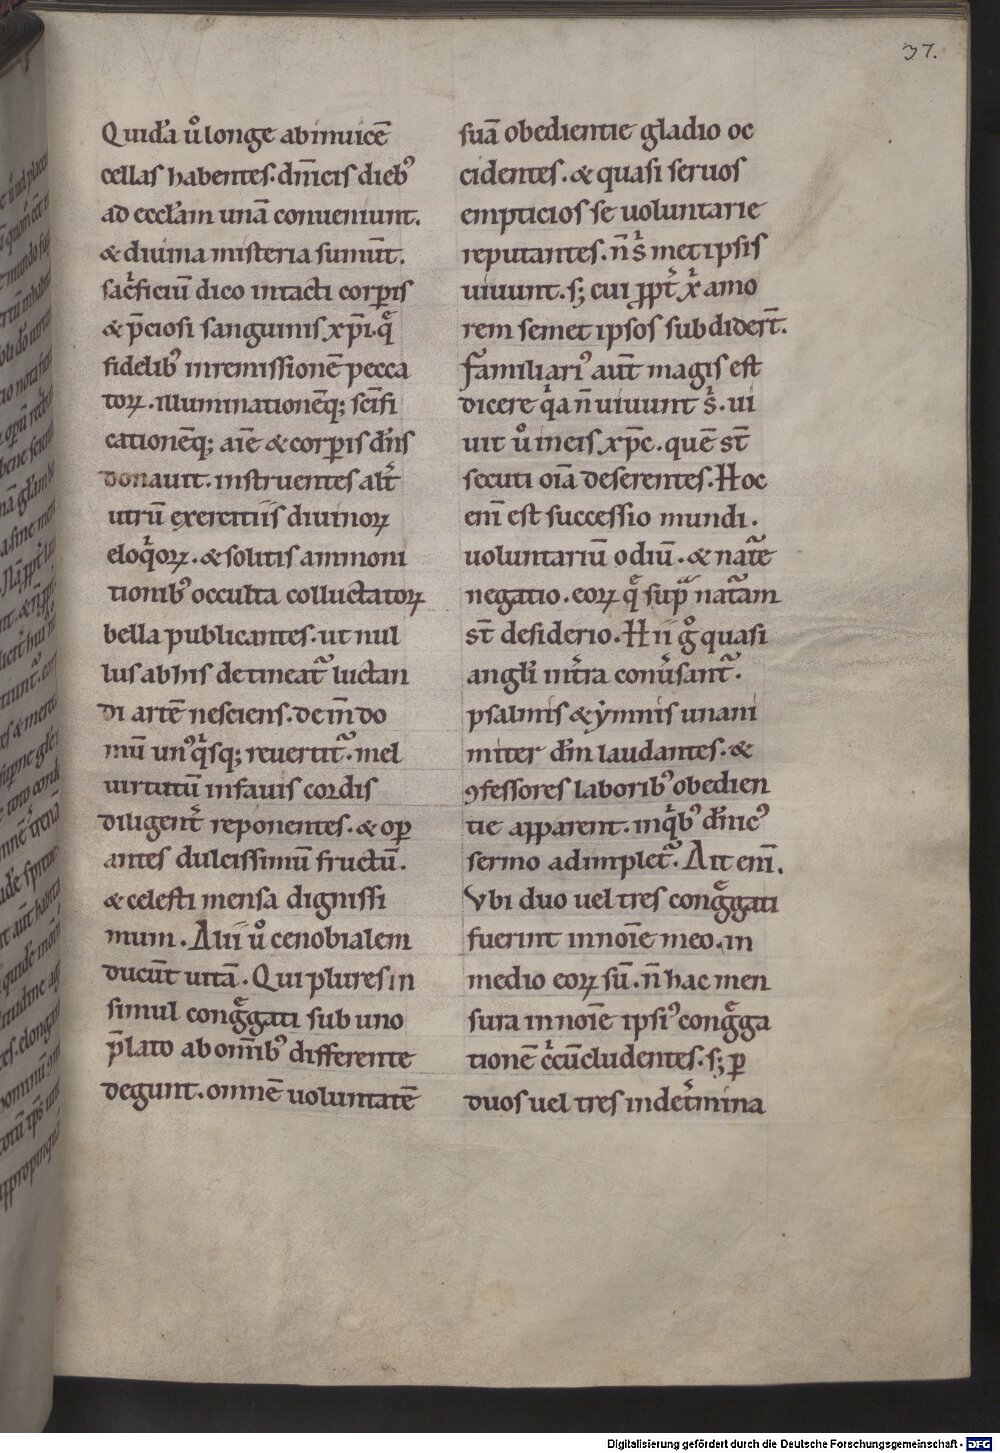 37.
Quidā u̾o longe abinuicē
cellas habentes. dn̄icis dieb᾽
ad eccłam unā conueniunt.
& diuina misteria sumūt.
sac̾ficiū dico intacti corꝑis
& p̄ciosi sanguinis xp̄i. q̾
fidelib᾽ inremissionē pecca
toꝝ. illuminationēq; sc̄ifi
cationēq; aīe & corꝑis dn̄s
donauit. instruentes alt̾
utrū exercitiis diuinoꝝ
eloq̾oꝝ. & solitis ammoni
tionib᾽ occulta colluctatoꝝ
bella publicantes. ut nul
lus abhis detineat᷑ luctan
di artē nesciens. dein̄ do
mū un᾽q̾sq; reuertit᷑. mel
uirtutū infauis cordis
diligent̾ reponentes. & oꝑ
antes dulcissimū fructū.
& celesti mensa dignissi
mum. Alii u̾o cenobialem
ducūt uitā. Qui plures in
simul cong̾gati sub uno
p̄lato ab om̄ib᾽ differente
degunt. omnē uoluntatē
suā obedientie gladio oc
cidentes. & quasi seruos
empticios se uoluntarie
reputantes. n̄ s̾ met ipsis
uiuunt. s; cui ꝓpt̾ x̾ amo
rem semet ipsos subdider̄t.
Familiari᾽ aūt magis est
dicere q̾a n̄ uiuunt s̾. ui
uit u̾o ineis xp̄c. quē st̄
secuti oīa deserentes. Hoc
eni̅ est successio mundi.
uoluntariū odiū. & nat᷑e
negatio. eoꝝ q̾ sup̾ nat᷑am
st̄ desiderio. Hii g̊ quasi
angłi int̾ra conu̾sant᷑.
psalmis & ẏmnis unani
miter dn̄m laudantes. &
ꝯfessores laborib᾽ obedien
tie apparent. inq̾b᾽ dn̄ic᾽
sermo adimplet᷑. Ait eni̅.
Vbi duo uel tres cong̾gati
fuerint innoīe meo. in
medio eoꝝ sū. n̄ hac men
sura innoīe ipsi᾽ cong̾ga
tionē c̾cūcludentes. s; ꝑ
duos uel tres indet̾mina
Digitalisierung gefördert durch die Deutsche Forschungsgemeinschaft - DFG